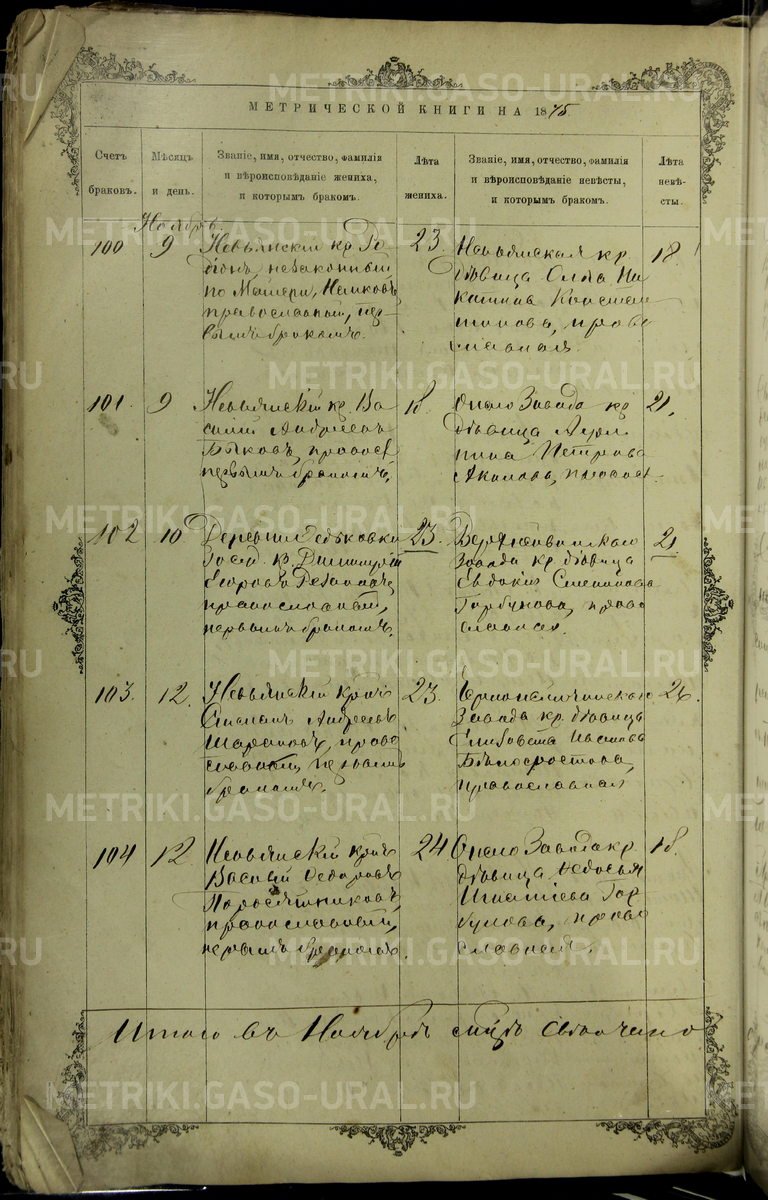 МЕТРИЧЕСКОЙ КНИГИ НА 1875
Счетъ браковъ.
Мѣсяцъ и день.
Званіе, имя, отчество, фамилія
и вѣроисповѣданіе жениха,
и которымъ бракомъ.
Лѣта жениха.
Званіе, имя, отчество, фамилія
и вѣроисповѣданіе невѣсты,
и которымъ бракомъ.
Лѣта невѣ-
сты.
Ноябрь.
100
9
Невьянскій кр. Ро
діонъ, незаконный
по Матери,
православный, пер-
вымъ бракомъ.
23.
Невьянская кр.
дѣвица Ни
Констан
тинова, право
славная.
18.
101.
9
Невьянскій кр. Ва
силій Андреевъ
Быковъ, правосл
первымъ бракомъ,
18.
Онаго Завода кр
дѣвица
Петрова
Акинѳова, правосл.
21,
102
10
Деревни Федьковки
Госуд. кр. Димитрій
Егоровъ
православный,
первымъ бракомъ.
23.
Завода кр. дѣвица
Евдокія Степанова
Горбунова, право
славная.
21
103.
12.
Невьянскій кр-нъ
Степанъ Андреевъ
Шараповъ, право
славный, первымъ
бракомъ.
23.
Черноисточинскаго
Завода кр. дѣвица
Елизавета Иванова
православная
26.
104
12
Невьянскій кр-нъ
Василій Ѳедоровъ
Поросятниковъ,
православный,
первымъ бракомъ.
24
Онаго Завода кр.
дѣвица Ѳедосья
Игнатіева Гор
бунова, право
славная.
18.
Итого въ Ноябрѣ м-цѣ
METRIKI.GASO-URAL.RU